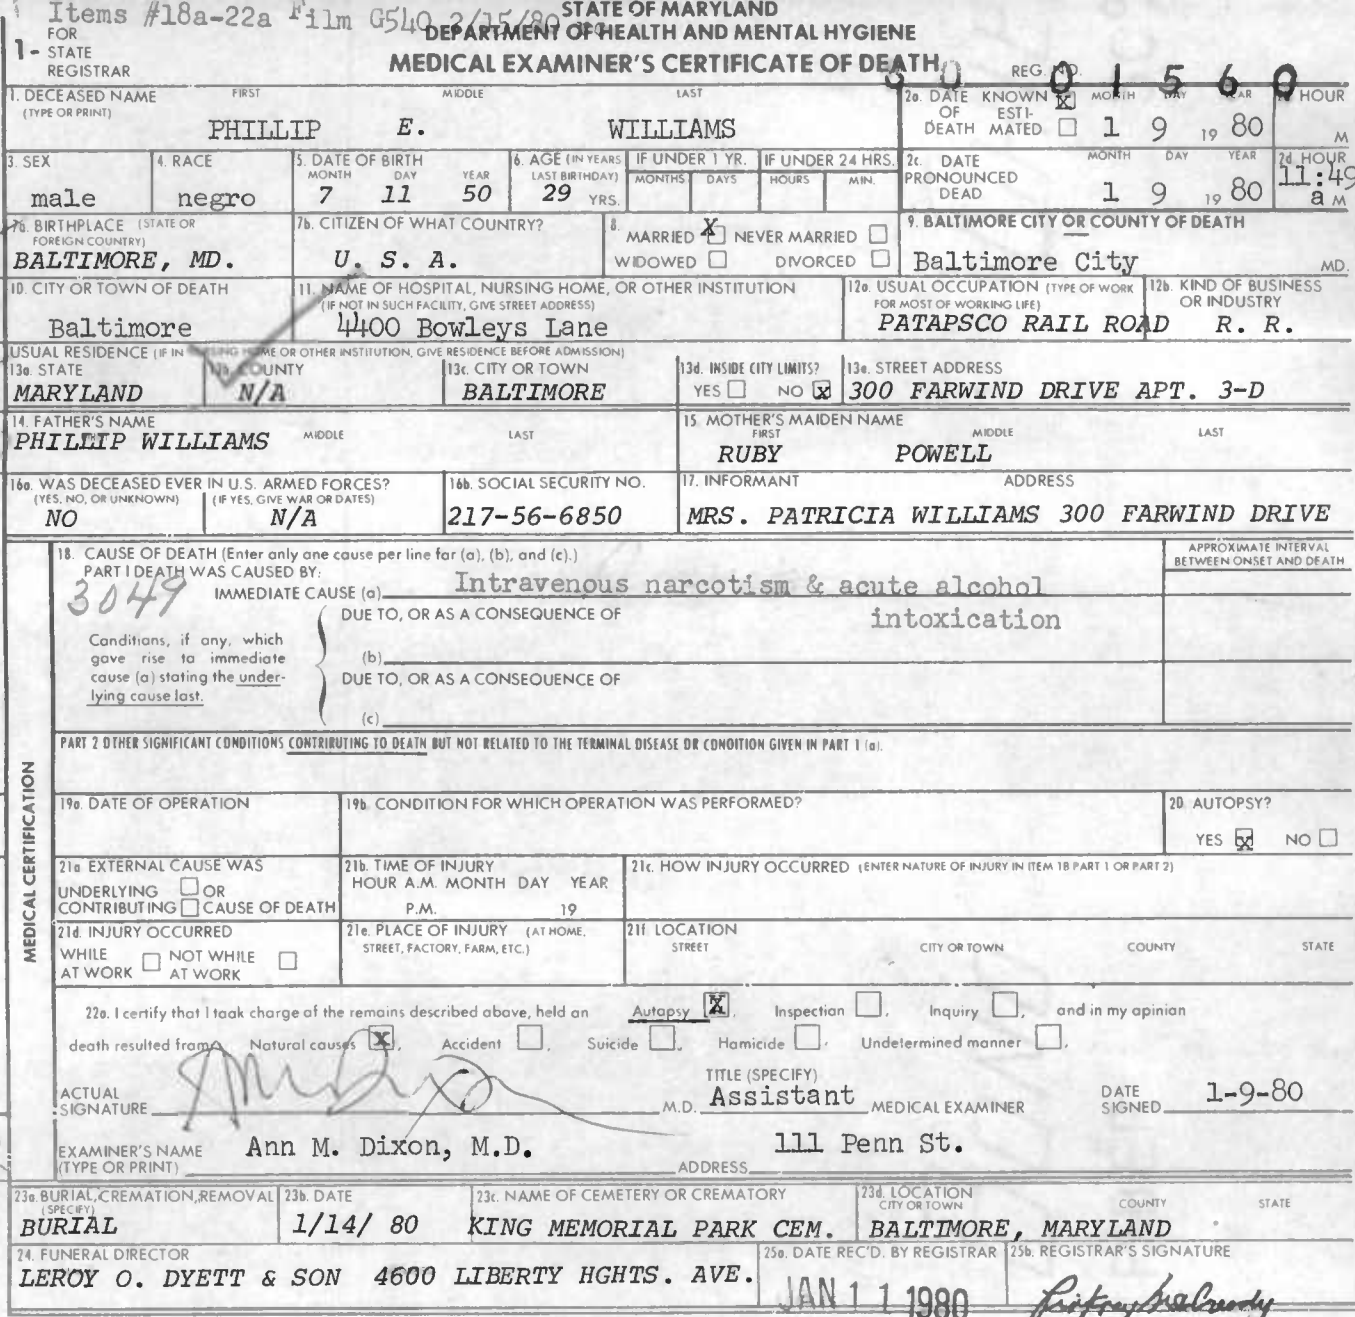 Items #18a-22a Film G540 2/15/80
STATE OF MARYLAND
DEPARTMENT OF HEALTH AND MENTAL HYGIENE
MEDICAL EXAMINER'S CERTIFICATE OF DEATH
FOR
1- STATE
REGISTRAR
REG. NO. 80 01560
1. DECEASED NAME FIRST MIDDLE LAST
(TYPE OR PRINT)
PHILLIP E. WILLIAMS
2a. DATE KNOWN X MONTH DAY YEAR HOUR
OF ESTI-
DEATH MATED 1 9 19 80 M
3. SEX
male
4. RACE
negro
5. DATE OF BIRTH
MONTH DAY YEAR
7 11 50
6. AGE (IN YEARS
LAST BIRTHDAY)
29 YRS.
IF UNDER 1 YR.
MONTHS DAYS
IF UNDER 24 HRS.
HOURS MIN.
2c. DATE MONTH DAY YEAR 2d. HOUR
PRONOUNCED
DEAD 1 9 19 80 11:49
a M
7a. BIRTHPLACE (STATE OR
FOREIGN COUNTRY)
BALTIMORE, MD.
7b. CITIZEN OF WHAT COUNTRY?
U. S. A.
8. MARRIED X NEVER MARRIED
WIDOWED DIVORCED
9. BALTIMORE CITY OR COUNTY OF DEATH
Baltimore City MD.
10. CITY OR TOWN OF DEATH
Baltimore
11. NAME OF HOSPITAL, NURSING HOME, OR OTHER INSTITUTION
(IF NOT IN SUCH FACILITY, GIVE STREET ADDRESS)
4400 Bowleys Lane
12a. USUAL OCCUPATION (TYPE OF WORK
FOR MOST OF WORKING LIFE)
PATAPSCO RAIL ROAD
12b. KIND OF BUSINESS
OR INDUSTRY
R. R.
USUAL RESIDENCE (IF IN NURSING HOME OR OTHER INSTITUTION, GIVE RESIDENCE BEFORE ADMISSION)
13a. STATE
MARYLAND
13b. COUNTY
N/A
13c. CITY OR TOWN
BALTIMORE
13d. INSIDE CITY LIMITS?
YES NO X
13e. STREET ADDRESS
300 FARWIND DRIVE APT. 3-D
14. FATHER'S NAME
PHILLIP WILLIAMS MIDDLE LAST
15. MOTHER'S MAIDEN NAME
FIRST MIDDLE LAST
RUBY POWELL
16a. WAS DECEASED EVER IN U.S. ARMED FORCES?
(YES, NO, OR UNKNOWN) (IF YES, GIVE WAR OR DATES)
NO N/A
16b. SOCIAL SECURITY NO.
217-56-6850
17. INFORMANT ADDRESS
MRS. PATRICIA WILLIAMS 300 FARWIND DRIVE
MEDICAL CERTIFICATION
18. CAUSE OF DEATH (Enter only one cause per line for (a), (b), and (c).)
APPROXIMATE INTERVAL
BETWEEN ONSET AND DEATH
PART I DEATH WAS CAUSED BY:
3049
IMMEDIATE CAUSE (a) Intravenous narcotism & acute alcohol
intoxication
DUE TO, OR AS A CONSEQUENCE OF
Conditions, if any, which
gave rise to immediate
cause (a) stating the under-
lying cause last.
(b)
DUE TO, OR AS A CONSEQUENCE OF
(c)
PART 2 OTHER SIGNIFICANT CONDITIONS CONTRIBUTING TO DEATH BUT NOT RELATED TO THE TERMINAL DISEASE OR CONDITION GIVEN IN PART 1 (a).
19a. DATE OF OPERATION
19b. CONDITION FOR WHICH OPERATION WAS PERFORMED?
20. AUTOPSY?
YES X NO
21a. EXTERNAL CAUSE WAS
UNDERLYING OR
CONTRIBUTING CAUSE OF DEATH
21b. TIME OF INJURY
HOUR A.M. MONTH DAY YEAR
P.M. 19
21c. HOW INJURY OCCURRED (ENTER NATURE OF INJURY IN ITEM 18 PART 1 OR PART 2)
21d. INJURY OCCURRED
WHILE NOT WHILE
AT WORK AT WORK
21e. PLACE OF INJURY (AT HOME,
STREET, FACTORY, FARM, ETC.)
21f. LOCATION
STREET CITY OR TOWN COUNTY STATE
22a. I certify that I took charge of the remains described above, held an Autopsy X, Inspection , Inquiry , and in my opinion
death resulted from Natural causes X, Accident , Suicide , Homicide , Undetermined manner ,
ACTUAL
SIGNATURE M.D.
TITLE (SPECIFY)
Assistant MEDICAL EXAMINER
DATE
SIGNED 1-9-80
EXAMINER'S NAME
(TYPE OR PRINT) Ann M. Dixon, M.D.
ADDRESS 111 Penn St.
23a. BURIAL, CREMATION, REMOVAL
(SPECIFY)
BURIAL
23b. DATE
1/14/ 80
23c. NAME OF CEMETERY OR CREMATORY
KING MEMORIAL PARK CEM.
23d. LOCATION
CITY OR TOWN COUNTY STATE
BALTIMORE, MARYLAND
24. FUNERAL DIRECTOR
LEROY O. DYETT & SON 4600 LIBERTY HGHTS. AVE.
25a. DATE REC'D. BY REGISTRAR
JAN 11 1980
25b. REGISTRAR'S SIGNATURE